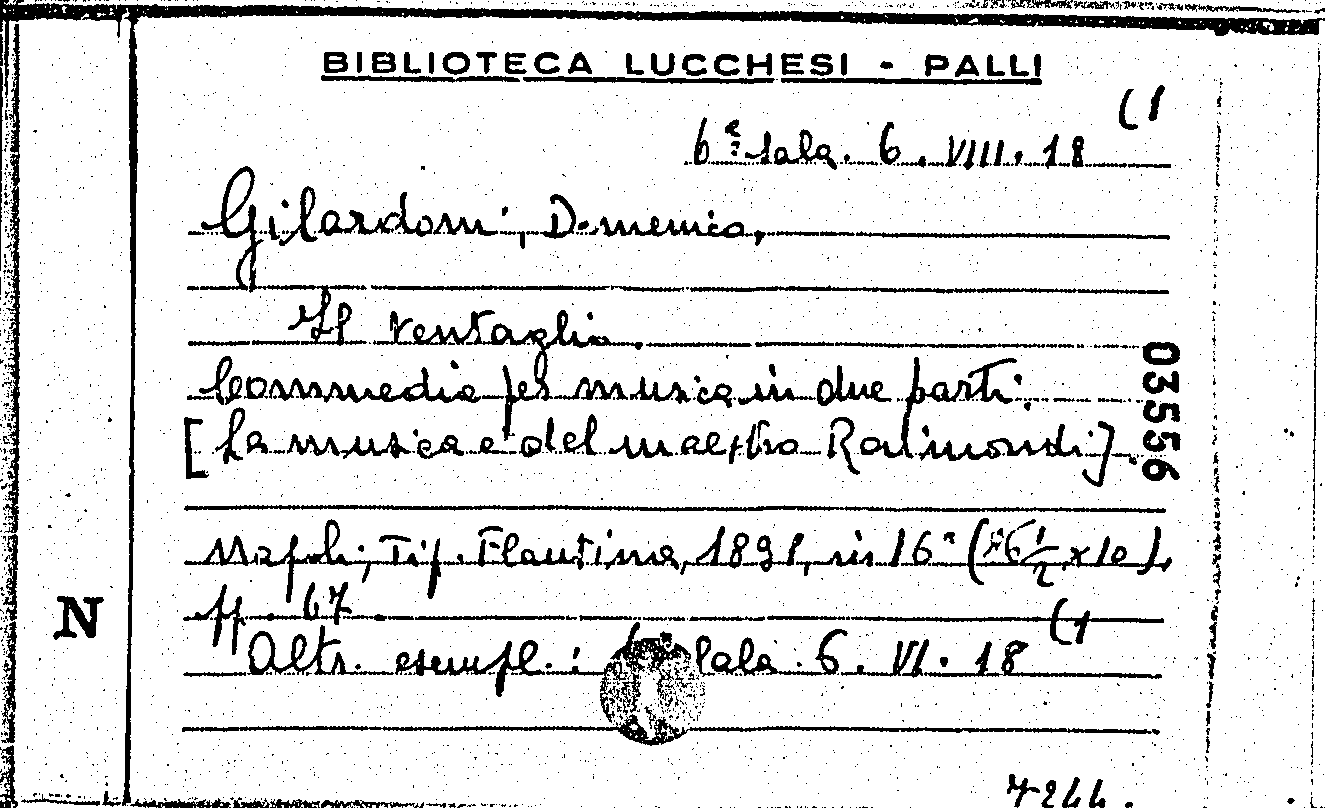 BIBLIOTECA LUCCHESI - PALLI
(1
6ª Sala. 6. VIII. 18
Gilardoni, Domenico,
Il Ventaglio.
Commedia per musica in due parti.
[La musica è del maestro Raimondi].
03556
Napoli, Tip. Flautina, 1831, in 16° (16 1/2 x 10),
pp. 67
(1
N
Altr. esempl.: Sala. 6. VI. 18
7244.